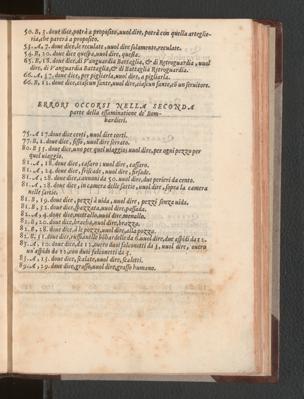 50. B, 3. doue dice, potrà a proposito, vuol dire, potrà con quella arteglie-
ria, che parerà a proposito.
53. A, 7. doue dice, le reculate, vuol dire solamente, reculate.
54. B, 20. doue dice questa, vuol dire, questa.
65. B, 18. doue dice, di Vanguardia Battaglia, & di Retroguardia, vuol
dire, di Vanguardia Battaglia, & di Battaglia Retroguardia.
66. A, 17. doue dice, per pigliarla, vuol dire, a pigliarla.
66. B, 12. doue dice, ciascun fante, vuol dire, ciascun fante, & un seruitore.
ERRORI OCCORSI NELLA SECONDA
parte della essaminatione de' Bom-
bardieri.
75. A 17. doue dice, corti, vuol dire, corti.
77. B, 1. doue dice, fisso, vuol dire ferrato.
80. B 15. doue dice, uno per quel uiaggio, vuol dire, per ogni pezzo per
quel uiaggio.
81. A, 18. doue dice, cassaro; vuol dire, cassaro.
81. A, 24. doue dice, vuol dire,
81. A, 28. doue dice, cannoni da 50. vuol dire, due perieri da cento.
81. A, 28. doue dice, in camera delle sartie, vuol dire, sopra la camera
nelle sartie.
81. B, 19. doue dice, pezzi à uida, vuol dire, pezzi senza uida.
81. B, 25. doue dice, spazzata, vuol dire, passada.
82. A, 4. doue dice, vuol dire, menallo.
82. B, 20. doue dice, bracha, vuol dire, brazza.
82. B, 28. doue dice, à le pezze, vuol dire, alla pozza.
83. B, 11. doue dice, da 6. vuol dire, due aspidi da 12.
85. A, 10. doue dice, da 12. ouero duoi falconetti da 3. vuol dire, ouero
un aspidi da 12, con duoi falconetti da 3.
85. A, 13. doue dice, scalate, vuol dire, scaletti.
89. A, 29. doue dice, grasso, vuol dire, grasso humano.